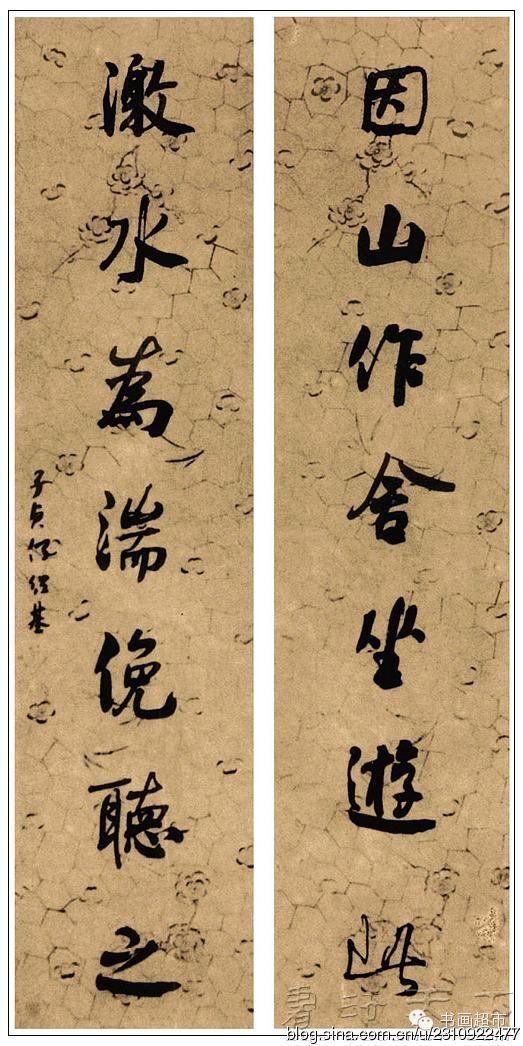 因山作舍坐遊此
激水為湍俛聽之
子貞何紹基
書法天下
书画超市
blog.sina.com.cn/u/2310922477